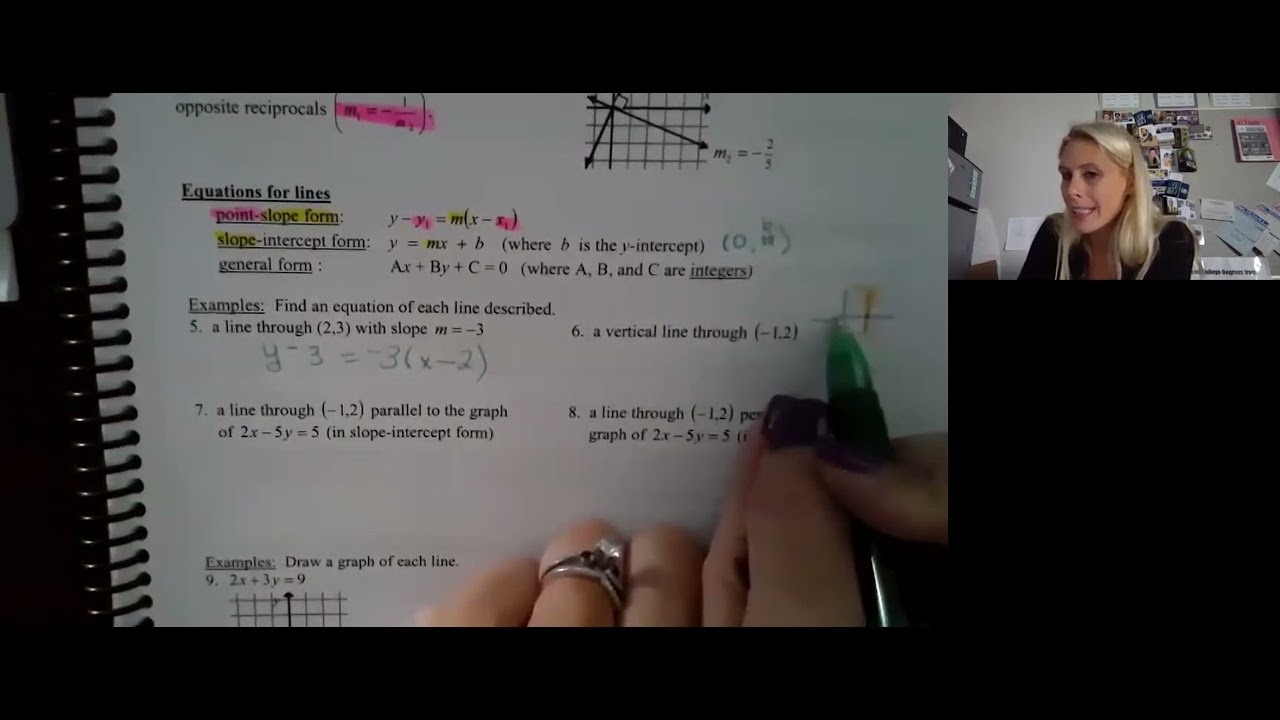 opposite reciprocals (m₁ = −1/m₂).
m₂ = −2/5
Equations for lines
point-slope form: y − y₁ = m(x − x₁)
slope-intercept form: y = mx + b (where b is the y-intercept) (0, )
general form : Ax + By + C = 0 (where A, B, and C are integers)
Examples: Find an equation of each line described.
5. a line through (2,3) with slope m = −3
y − 3 = −3(x − 2)
6. a vertical line through (−1,2)
7. a line through (−1,2) parallel to the graph
of 2x − 5y = 5 (in slope-intercept form)
8. a line through (−1,2)
graph of 2x − 5y = 5
Examples: Draw a graph of each line.
9. 2x + 3y = 9